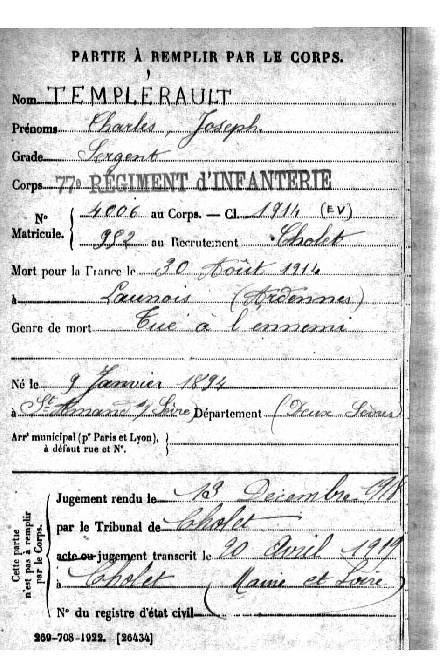 PARTIE À REMPLIR PAR LE CORPS.
Nom TEMPLÉRAULT
Prénoms Charles, Joseph.
Grade Sergent
Corps 77e RÉGIMENT d'INFANTERIE
N° Matricule. { 4006 au Corps. — Cl. 1914 (EV)
982 au Recrutement Cholet
Mort pour la France le 30 Août 1914
à Launois (Ardennes)
Genre de mort Tué à l'ennemi
Né le 9 Janvier 1894
à St Amand s/ Sèvre Département (Deux Sèvres
Arrt municipal (pr Paris et Lyon),
à défaut rue et N°.
Cette partie n'est pas à remplir par le Corps.
Jugement rendu le 13 Décembre 1918
par le Tribunal de Cholet
acte ou jugement transcrit le 20 Avril 1919
à Cholet (Maine et Loire)
N° du registre d'état civil
269-708-1922. [26434]